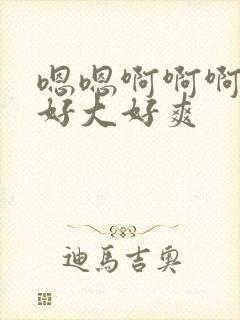 嗯嗯啊啊啊
好大好爽
迪馬吉奧